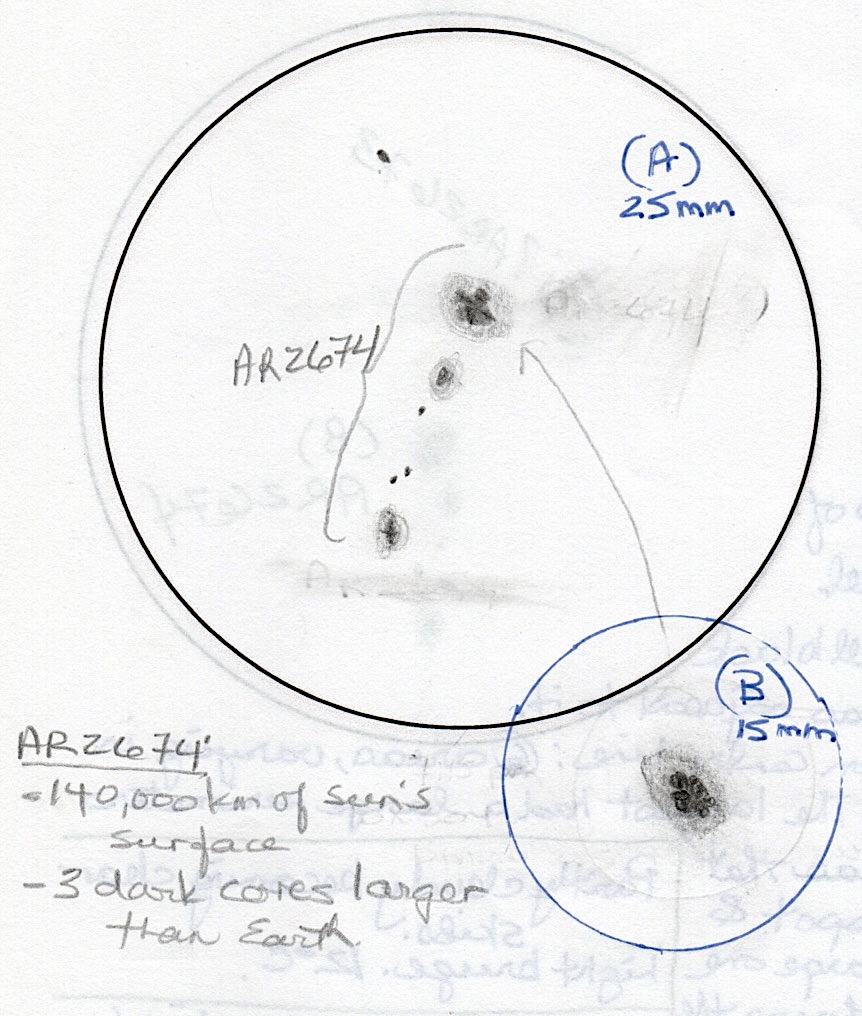 (A)
25mm
AR2674
(B)
15mm
AR2674
-140,000km of sun's
surface
- 3 dark cores larger
than Earth.